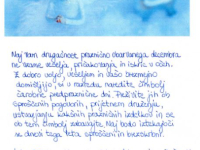 Naj Vam dragocenost praznično obarvanega decembra
ne vzame veselja, pričakovanja in iskric v očeh.
Z dobro voljo, veseljem in vašo brezmejno
domišljijo, si v mesecu naredite čimbolj
čarobne predpraznične dni. Preživite jih ob
sproščenih pogovorih, prijetnem druženju,
ustvarjanju kakšnih prazničnih izdelkov in se
ob tem čimbolj zabavajte. Naj bodo iztekajoči
se dnevi tega leta sproščeni in brezskrbni.